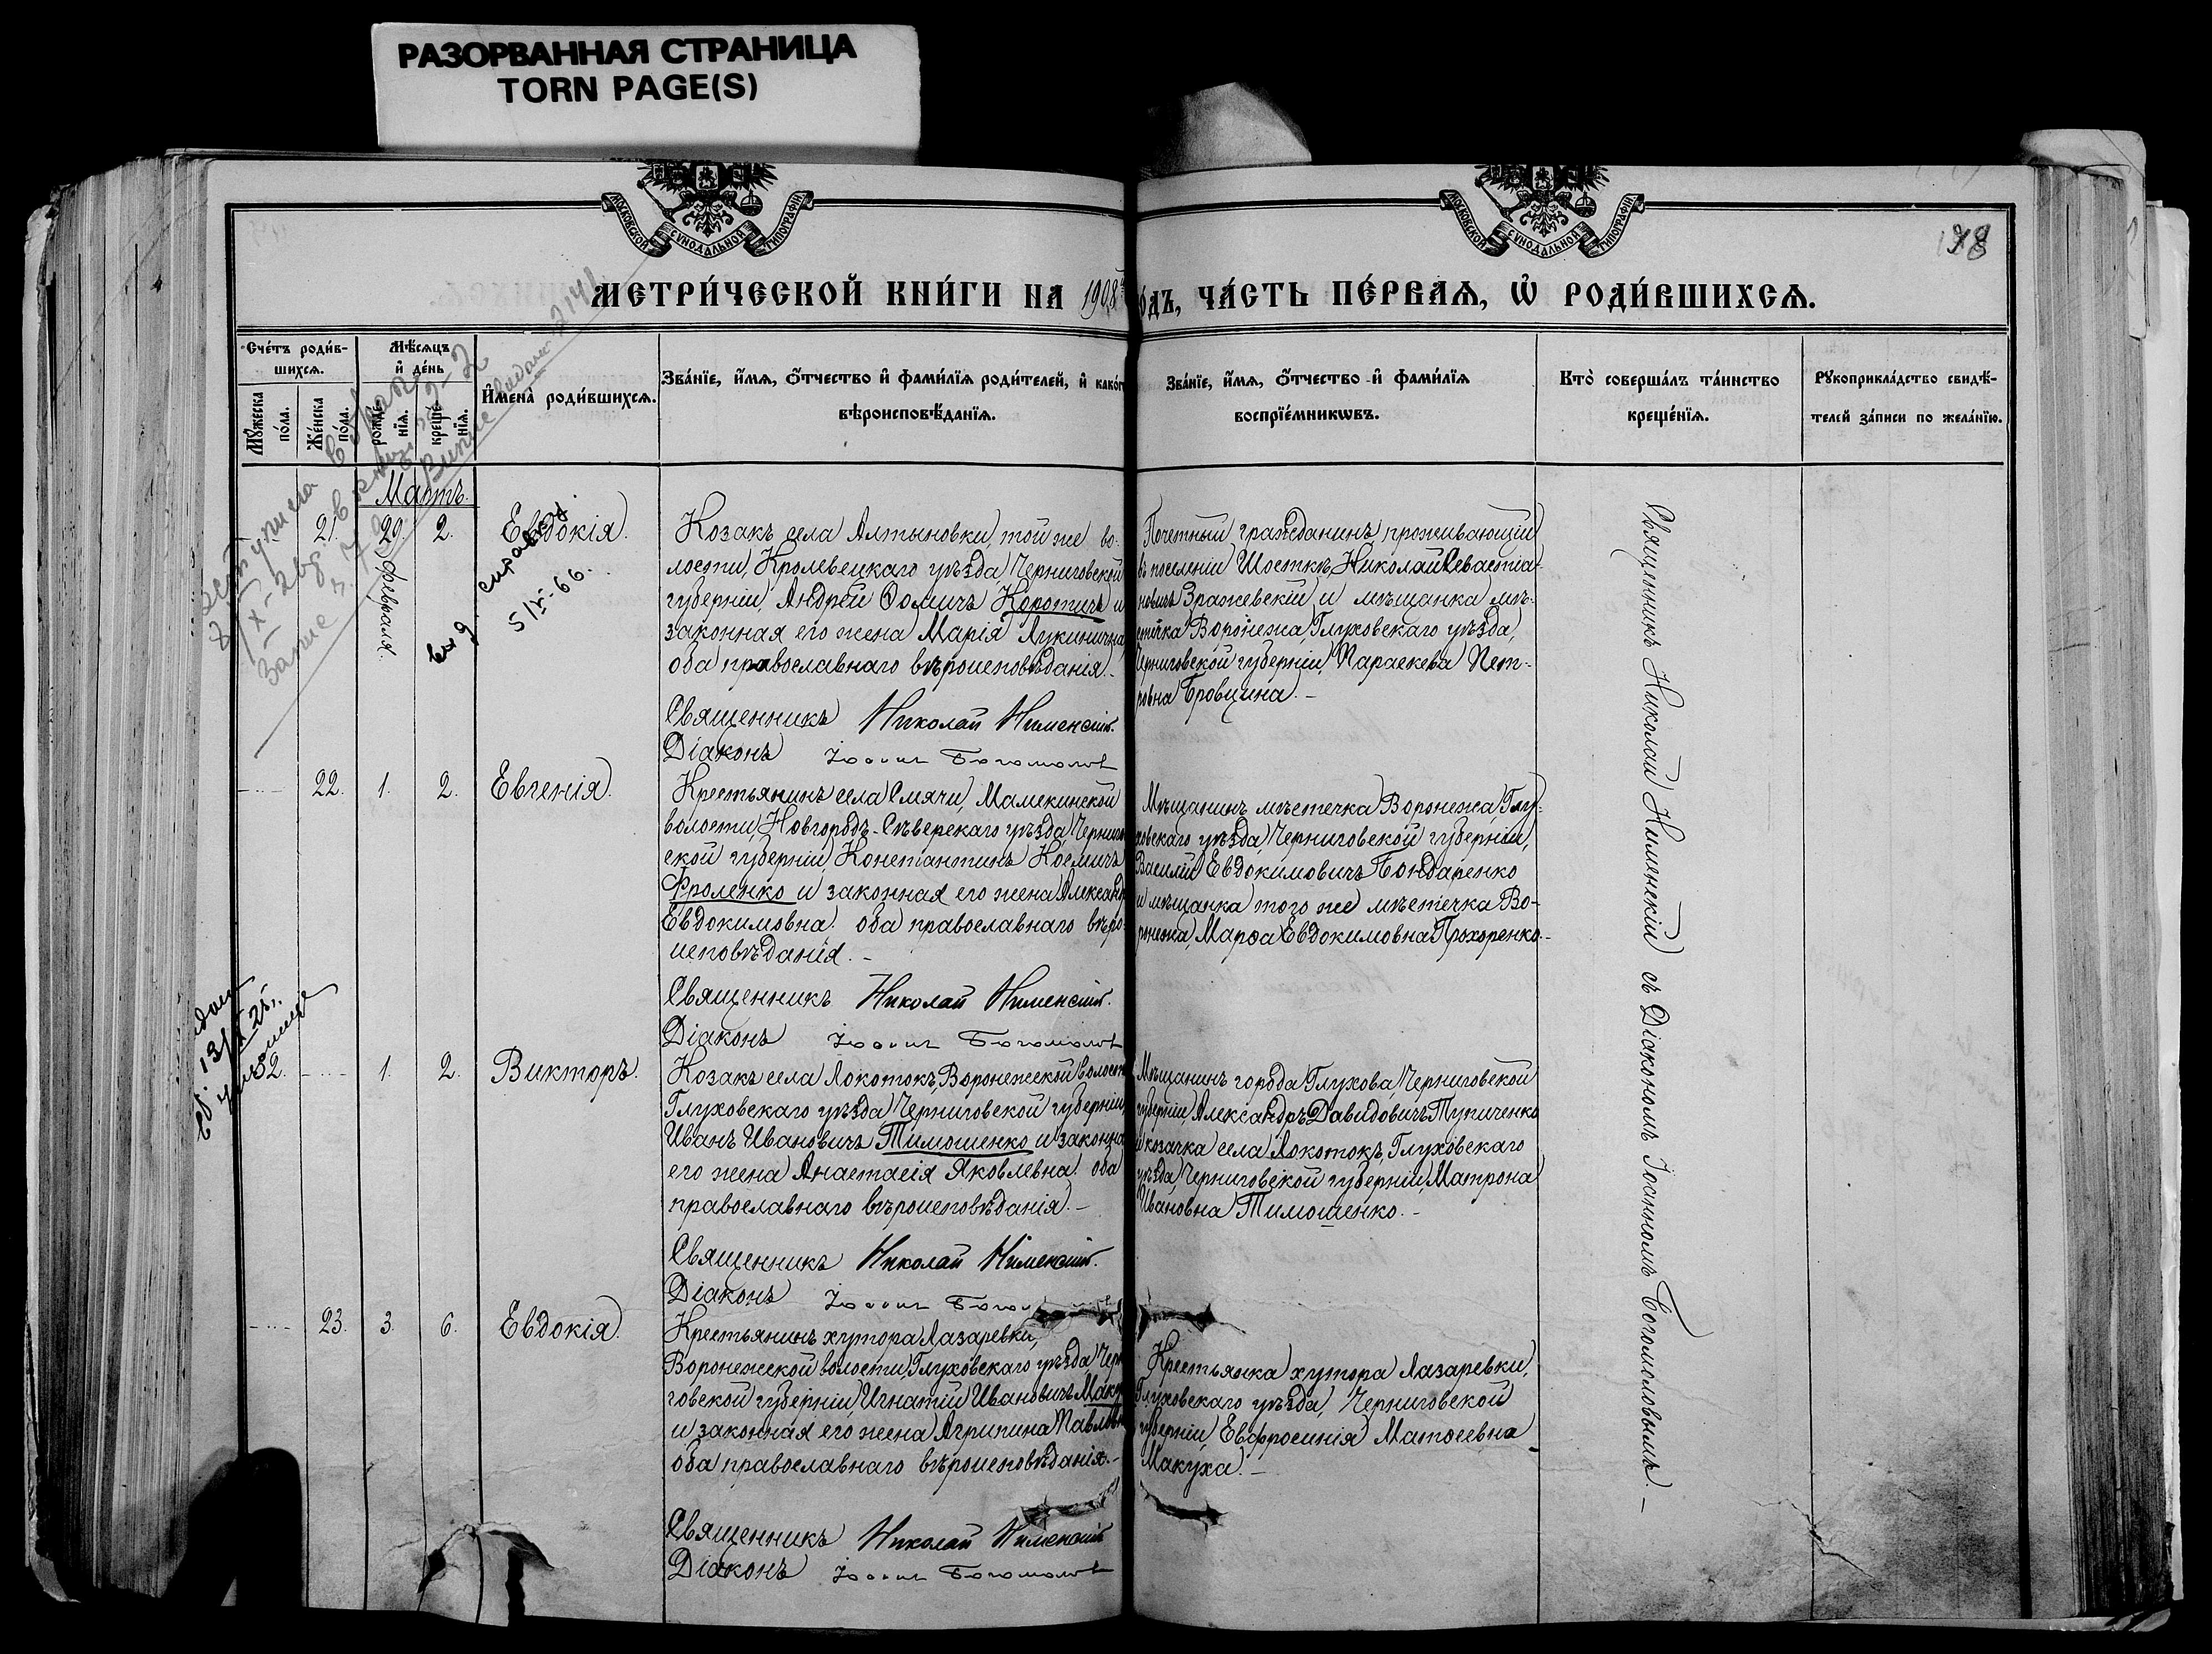 РАЗОРВАННАЯ СТРАНИЦА
TORN PAGE(S)
МОСКОВСКОЙ СѴНОДАЛЬНОЙ ТИПОГРАФІИ
МОСКОВСКОЙ СѴНОДАЛЬНОЙ ТИПОГРАФІИ
98
МЕТРИ́ЧЕСКОЙ КНИ́ГИ НА 1908 ГОДЪ, ЧА́СТЬ ПЕ́РВАѦ, Ѡ РОДИ́ВШИХСѦ.
Сче́тъ роди́в-
шихсѧ.
Мꙋ́жеска
по́ла.
Же́нска
по́ла.
Мѣ́сѧцъ
и҆ де́нь
рожде́-
нїѧ.
креще́-
нїѧ.
И҆мена̀ роди́вшихсѧ.
Зва́нїе, и҆́мѧ, ѻ҆́тчество и҆ фами́лїѧ роди́телей, и҆ како́гѡ
вѣроисповѣ́данїѧ.
Зва́нїе, и҆́мѧ, ѻ҆́тчество и҆ фами́лїѧ
воспрїе́мникѡвъ.
Кто̀ соверша́лъ та́инство
креще́нїѧ.
Рꙋкоприкла́дство свидѣ́-
телей за́писи по жела́нїю.
Мартъ.
21. 29. февраля. 2. Евдокія.
справку
5/V-66.
Козакъ села Алтыновки, той же во-
лости, Кролевецкаго уѣзда, Черниговской
губерніи, Андрей Ѳомичъ Коротичъ и
законная его жена Марія Лукинична,
оба православнаго вѣроисповѣданія. -
Священникъ Николай Нименскій.
Діаконъ Іоаннъ Богомоловъ
Почетный гражданинъ, проживающій
въ поселеніи Шосткѣ, Николай Севастіа-
новичъ Зражевскій и мѣщанка мѣ-
стечка Воронежа, Глуховскаго уѣзда,
Черниговской губерніи, Параскева Пет-
ровна Бровцина. -
22. 1. 2. Евгенія.
Крестьянинъ села Смячи, Мамекинской
волости, Новгородъ-Сѣверскаго уѣзда, Чернигов
ской губерніи, Константинъ Космичъ
Фроленко и законная его жена Александра
Евдокимовна, оба православнаго вѣро-
исповѣданія. -
Священникъ Николай Нименскій.
Діаконъ Іоаннъ Богомоловъ
Мѣщанинъ мѣстечка Воронежа, Глу-
ховскаго уѣзда, Черниговской губерніи,
Василій Евдокимовичъ Бондаренко
и мѣщанка того же мѣстечка Во-
ронежа, Марѳа Евдокимовна Прохоренко. -
32. 1. 2. Викторъ.
Козакъ села Локотокъ, Воронежской волости,
Глуховскаго уѣзда, Черниговской губерніи,
Иванъ Ивановичъ Тимошенко и законная
его жена Анастасія Яковлевна, оба
православнаго вѣроисповѣданія. -
Священникъ Николай Нименскій.
Діаконъ Іоаннъ Богомоловъ
Мѣщанинъ города Глухова, Черниговской
губерніи, Александръ Давидовичъ Тупиченко
и козачка села Локотокъ, Глуховскаго
уѣзда, Черниговской губерніи, Матрона
Ивановна Тимошенко. -
23. 3. 6. Евдокія.
Крестьянинъ хутора Лазаревки,
Воронежской волости, Глуховскаго уѣзда, Черни
говской губерніи, Игнатій Ивановичъ Макуха
и законная его жена Агрипина Павловна,
оба православнаго вѣроисповѣданія. -
Священникъ Николай Нименскій
Діаконъ Іоаннъ Богомоловъ
Крестьянка хутора Лазаревки,
Глуховскаго уѣзда, Черниговской
губерніи, Евфросинія Матѳеевна
Макуха. -
Священникъ Николай Нименскій съ Діакономъ Іоанномъ Богомоловымъ. -